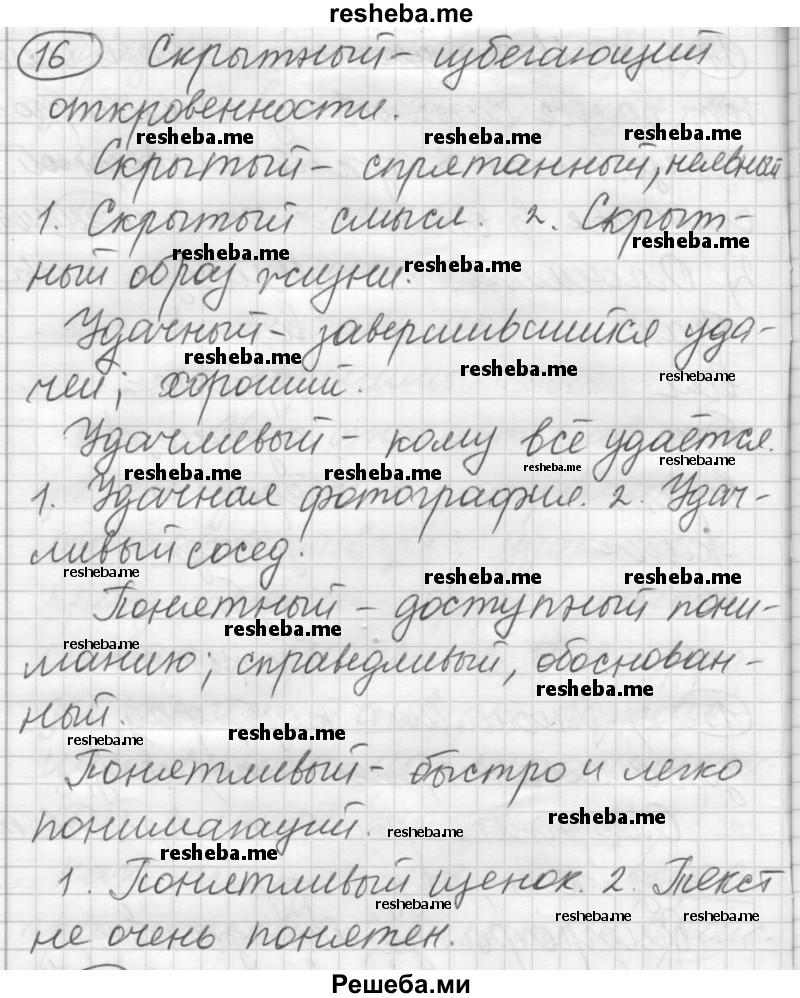 resheba.me
16 Скрытный - избегающий
откровенности.
resheba.me resheba.me resheba.me
Скрытый - спрятанный, неявный
1. Скрытый смысл. 2. Скрыт-
resheba.me resheba.me resheba.me
ный образ жизни.
Удачный - завершившийся уда-
resheba.me resheba.me resheba.me
чей; хороший.
Удачливый - кому всё удаётся.
resheba.me resheba.me resheba.me resheba.me
1. Удачная фотография. 2. Удач-
ливый сосед.
resheba.me resheba.me resheba.me
Понятный - доступный пони-
resheba.me resheba.me
манию; справедливый, обоснован-
resheba.me
ный.
resheba.me resheba.me
Понятливый - быстро и легко
понимающий.
resheba.me resheba.me
resheba.me
1. Понятливый щенок. 2. Текст
resheba.me resheba.me resheba.me
не очень понятен.
Решеба.ми